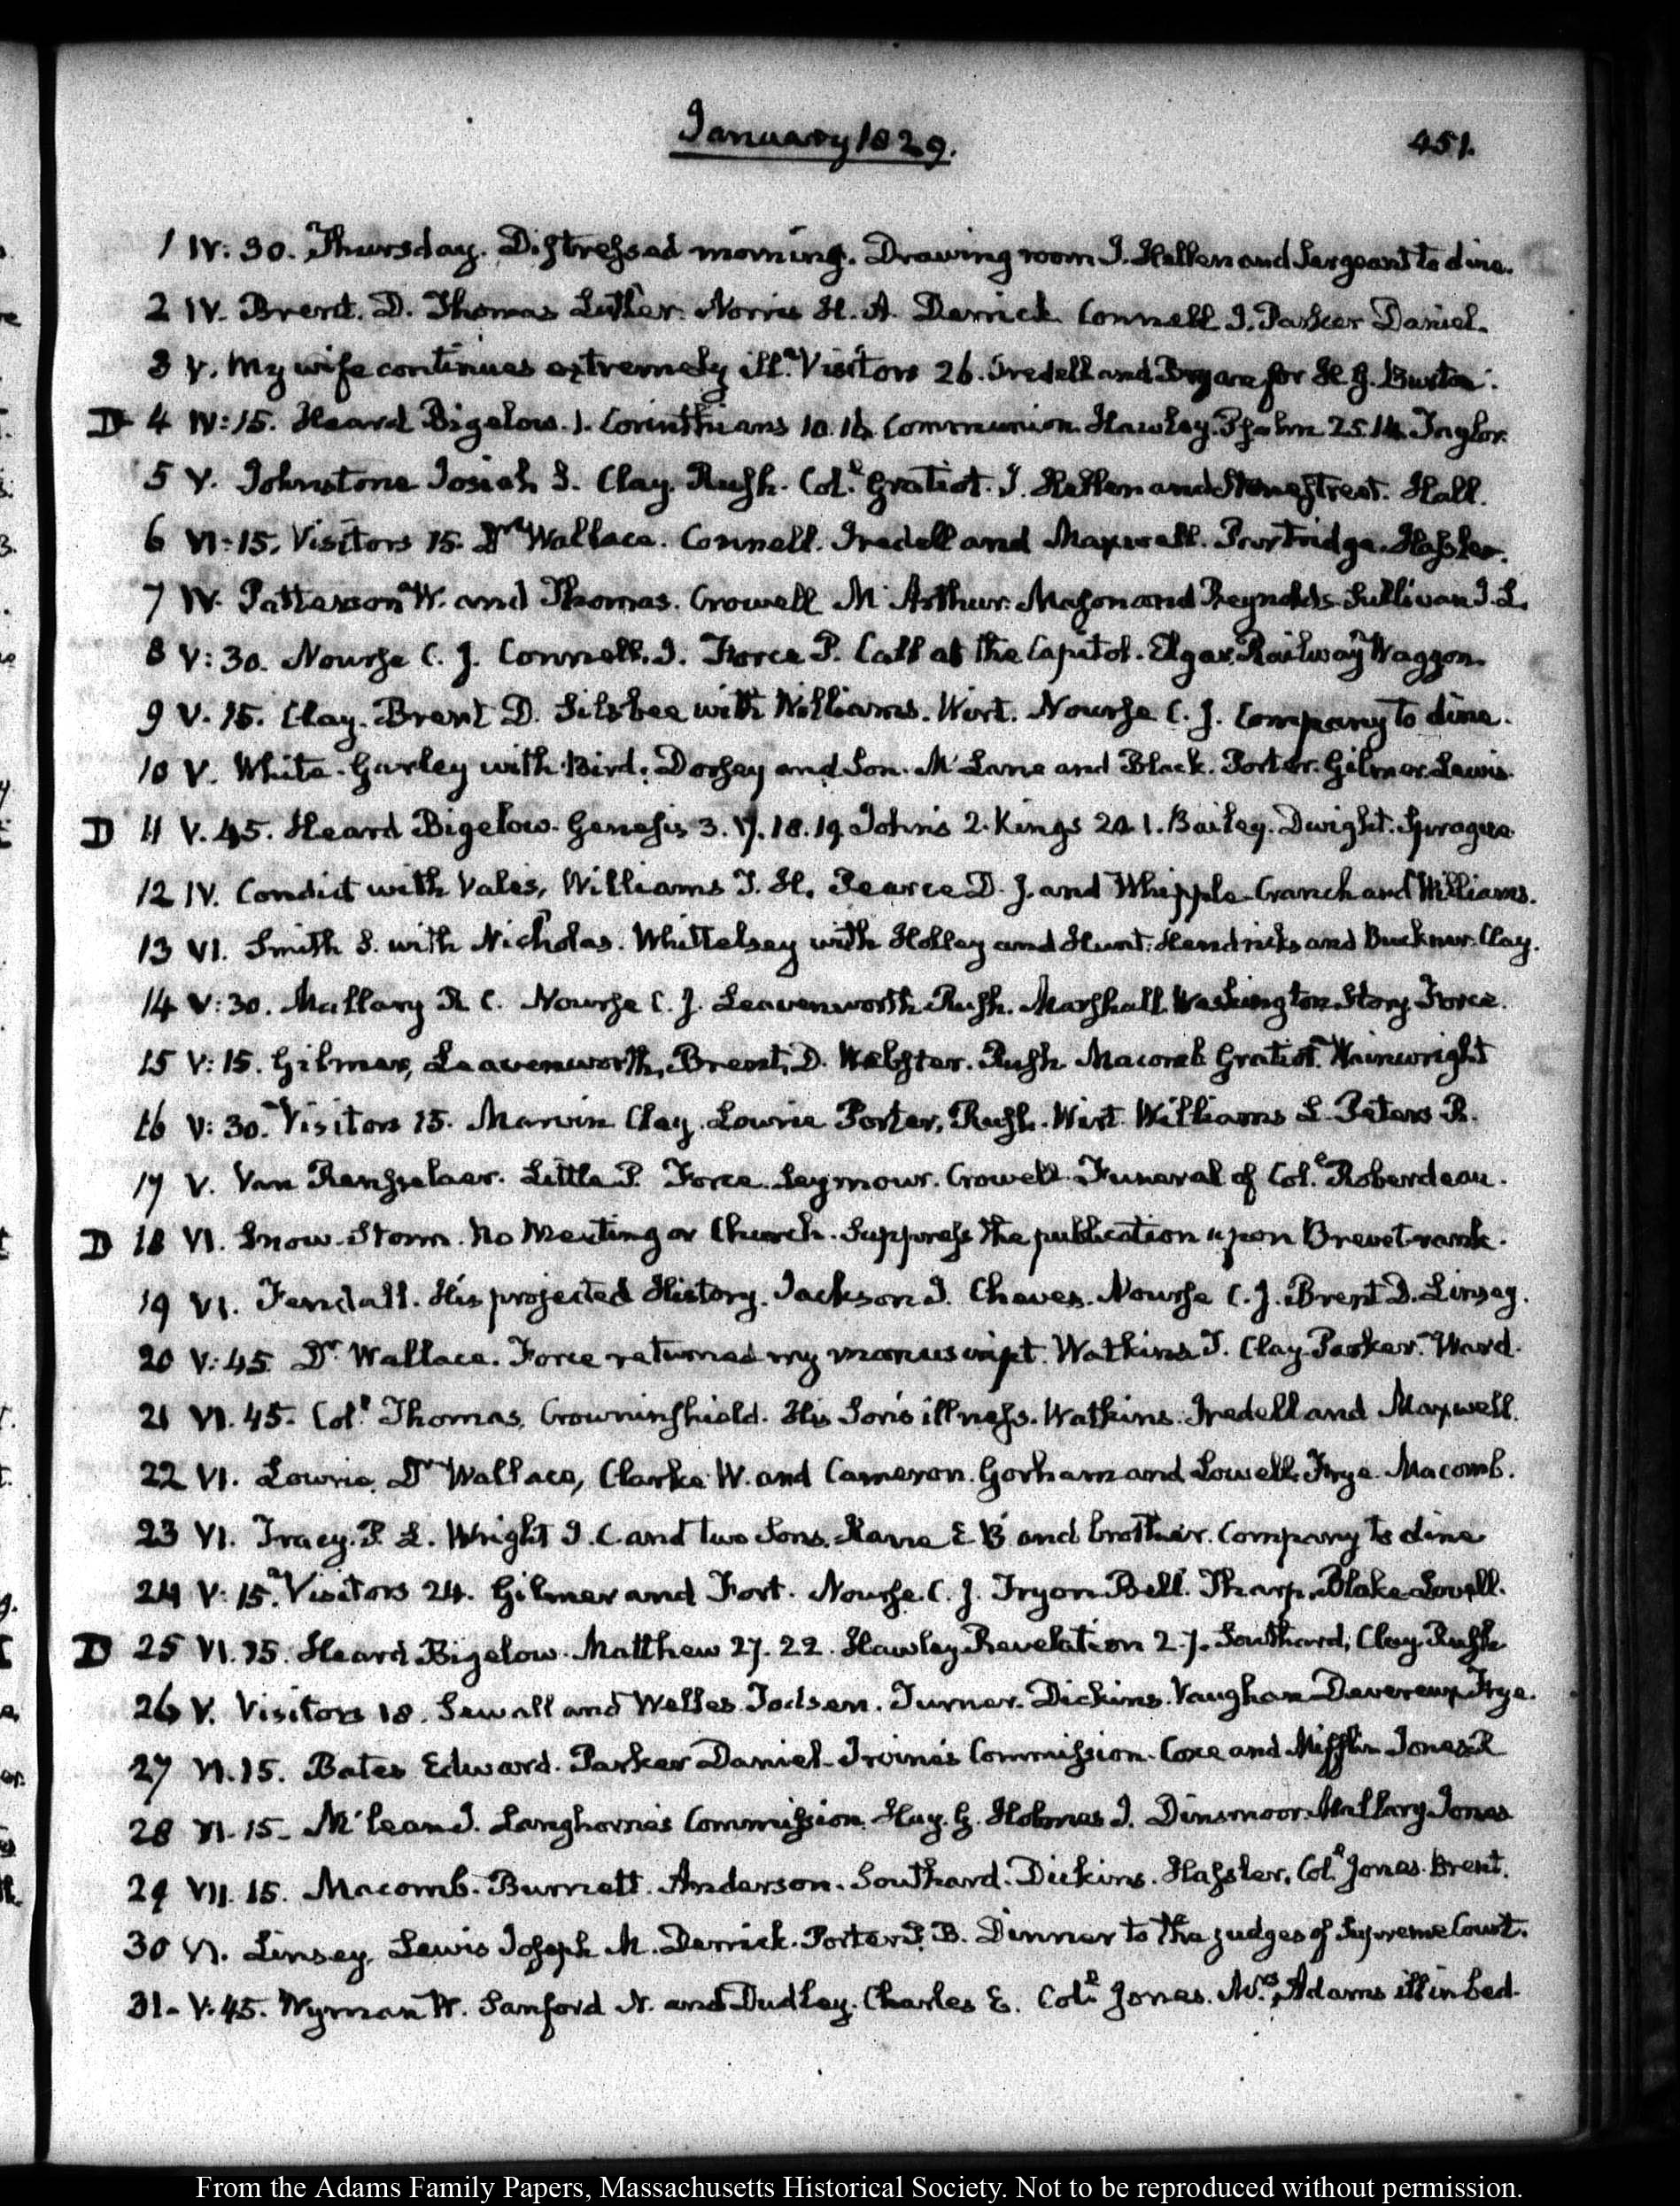 January 1829.
451.
1 IV:30. Thursday. Distressed morning. Drawing room J. Hellen and Sergeant to dine.
2 IV. Brent. D. Thomas Luther. Norris H. A. Derrick. Connell J. Parker Daniel.
3 V. My wife continues extremely ill. Visitors 26. Iredell and Bryan for H. G. Burton.
D 4 IV:15. Heard Bigelow. 1. Corinthians 10.16. Communion. Hawley. Psalm 25.14. Taylor.
5 V. Johnstone Josiah S. Clay. Rush. Coll. Gratiot. J. Hellen and Stonestreet. Hall.
6 VI-15. Visitors 15. Dr. Wallace. Connell. Iredell and Maxwell. Partridge. Hassler.
7 IV. Patterson W. and Thomas. Crowell McArthur. Mason and Reynolds. Sullivan J. L.
8 V:30. Nourse C. J. Connell. J. Force P. Call at the Capitol. Elgar. Railway Waggon.
9 V.15. Clay. Brent D. Silsbee with Williams. Wirt. Nourse C. J. Company to dine.
10 V. White. Gurley with Bird. Dorsey and Son. McLane and Black. Porter. Gilmer. Lewis.
D 11 V.45. Heard Bigelow. Genesis 3.17.18.19. Johns 2. Kings 20.1. Bailey. Dwight. Sprague
12 IV. Condict with Vales, Williams T. H. Pearce D. J. and Whipple. Cranch and Williams.
13 VI. Smith S. with Nicholas. Whittelsey with Holley and Hunt. Hendricks and Buckner. Clay.
14 V:30. Mallary R C. Nourse C. J. Leavenworth. Rush. Marshall. Washington. Story. Force.
15 V:15. Gilmer, Leavenworth, Brent, D. Webster. Rush. Macomb. Gratiot. Wainwright
16 V:30. Visitors 15. Marvin Clay. Lowrie Porter, Rush. Wirt. Williams L. Peters R.
17 V. Van Rensselaer. Little P. Force. Seymour. Crowell. Funeral of Col. Roberdeau.
D 18 VI. Snow-Storm. No Meeting or Church. Suppress the publication upon Brevet rank.
19 VI. Fendall. His projected History. Jackson J. Cheves. Nourse C. J. Brent D. Linsey.
20 V:45. Dr. Wallace. Force returned my manuscript. Watkins T. Clay. Parker. Ward.
21 VI.45. Coll. Thomas. Crowninshield. His Son's illness. Watkins. Iredell and Maxwell.
22 VI. Lowrie. Dr. Wallace, Clarke W. and Cameron. Gorham and Lowell. Frye. Macomb.
23 VI. Tracy. P. L. Wright J. C and two Sons. Kane E B and brother. Company to dine
24 V:15. Visitors 24. Gilmer and Fort. Nourse. C. J. Tryon. Bell. Tharp. Blake. Lovell.
D 25 VI.15. Heard Bigelow. Matthew 27.22. Hawley. Revelation 2.7. Southard, Clay. Rush
26 V. Visitors 18. Sewall and Welles. Todsen. Turner. Dickins. Vaughan. Devereux. Frye.
27 VI.15. Bates Edward. Parker Daniel. Irvine's Commission. Coxe and Mifflin Jones. R
28 VI.15. McLean J. Langhorne's Commission. Hay. G. Holmes J. Dinsmoor. Mallary. Jones
29 VII.15. Macomb. Burnett. Anderson. Southard. Dickins. Hassler. Coll. Jones. Brent.
30 VI. Linsey. Lewis Joseph M. Derrick. Porter P. B. Dinner to the judges of Supreme Court.
31- V:45. Wyman W. Sanford N. and Dudley. Charles E. Coll. Jones. Mrs. Adams ill in bed.
From the Adams Family Papers, Massachusetts Historical Society. Not to be reproduced without permission.